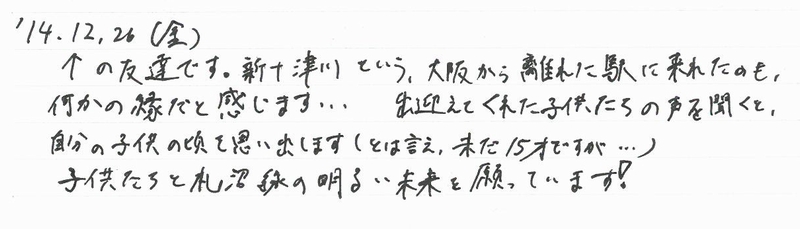 '14.12.26（金）
↑の友達です。新十津川という、大阪から離れた駅に来れたのも、
何かの縁だと感じます… 出迎えてくれた子供たちの声を聞くと、
自分の子供の頃を思い出します（とは言え、未だ15才ですが…）
子供たちと札沼線の明るい未来を願っています!